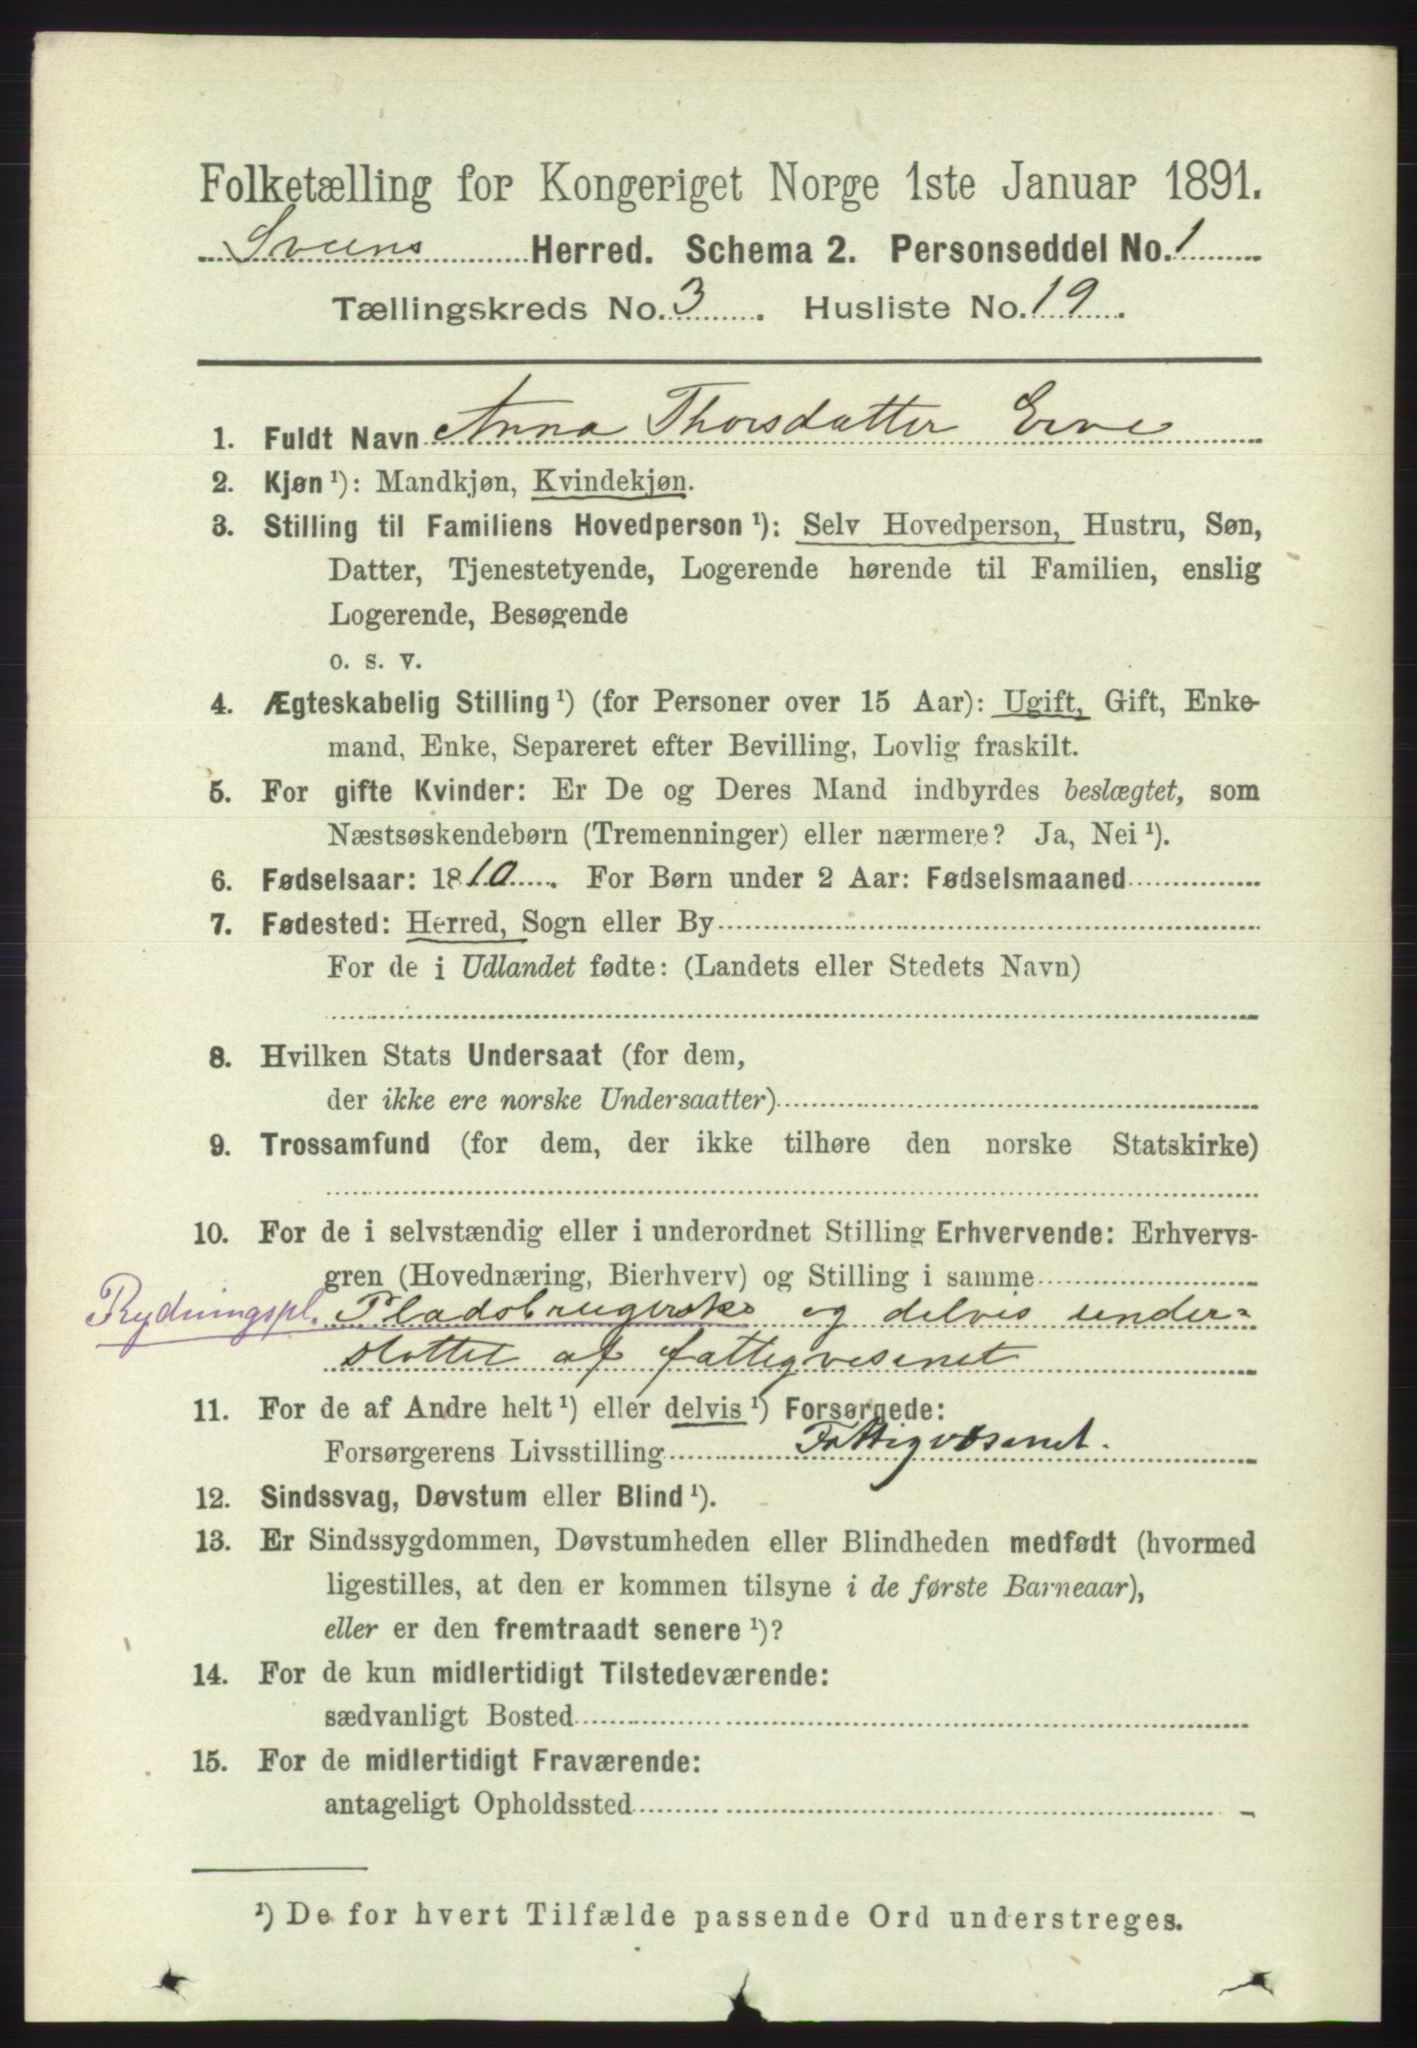 Folketælling for Kongeriget Norge 1ste Januar 1891.
Sveens Herred. Schema 2. Personseddel No. 1
Tællingskreds No. 3. Husliste No. 19.
1. Fuldt Navn Anna Thorsdatter Erve
2. Kjøn ¹): Mandkjøn, Kvindekjøn.
3. Stilling til Familiens Hovedperson ¹): Selv Hovedperson, Hustru, Søn,
Datter, Tjenestetyende, Logerende hørende til Familien, enslig
Logerende, Besøgende
o. s. v.
4. Ægteskabelig Stilling ¹) (for Personer over 15 Aar): Ugift, Gift, Enke-
mand, Enke, Separeret efter Bevilling, Lovlig fraskilt.
5. For gifte Kvinder: Er De og Deres Mand indbyrdes beslægtet, som
Næstsøskendebørn (Tremenninger) eller nærmere? Ja, Nei ¹).
6. Fødselsaar: 1810. For Børn under 2 Aar: Fødselsmaaned
7. Fødested: Herred, Sogn eller By
For de i Udlandet fødte: (Landets eller Stedets Navn)
8. Hvilken Stats Undersaat (for dem,
der ikke ere norske Undersaatter)
9. Trossamfund (for dem, der ikke tilhøre den norske Statskirke)
10. For de i selvstændig eller i underordnet Stilling Erhvervende: Erhvervs-
gren (Hovednæring, Bierhverv) og Stilling i samme
Rydningspl. Pladsbrugerske og delvis under=
stöttet af fattigvesenet
11. For de af Andre helt ¹) eller delvis ¹) Forsørgede:
Forsørgerens Livsstilling Fattigvæsenet.
12. Sindssvag, Døvstum eller Blind ¹).
13. Er Sindssygdommen, Døvstumheden eller Blindheden medfødt (hvormed
ligestilles, at den er kommen tilsyne i de første Barneaar),
eller er den fremtraadt senere ¹)?
14. For de kun midlertidigt Tilstedeværende:
sædvanligt Bosted
15. For de midlertidigt Fraværende:
antageligt Opholdssted
¹) De for hvert Tilfælde passende Ord understreges.